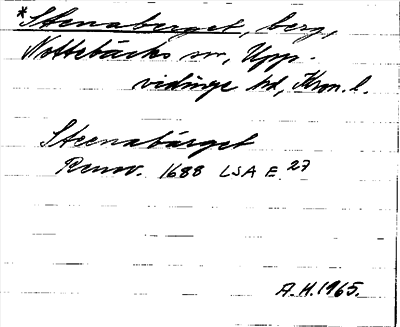 *Stenaberget, berg,
Nottebäcks sn, Upp-
vidinge hd, Kron. l.
Steenabärget
Renov. 1688 LSA E 27
A.H. 1965.